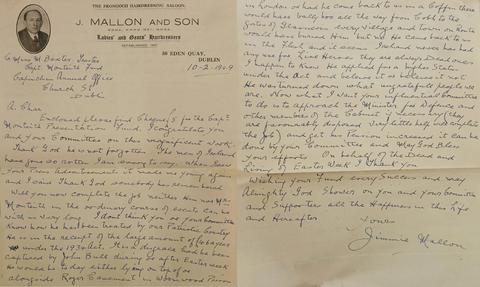 THE PROGDOR HAIRDRESSING SALOON.
J. MALLON AND SON
Ladies' and Gents' Hairdressers
ESTABLISHED
30 EDEN QUAY,
DUBLIN
10-2-1949
C/o Miss M Baxter,
Capt Monteith Fund
Capuchin Annual Office
Church St
Dublin
A Chara
Enclosed please find Cheque for the Capt
Monteith Presentation Fund. Congratulate you
and your Committee on this magnificent work.
Thank God he is not forgotten. The men of Ireland
have gone so rotten I am sorry to say. When I saw
your Press Advertisement it made me young again
and I said Thank God somebody has remembered
Will you now complete the job neither Him nor Mrs
Monteith in the ordinary course of events can be
with us very long. I dont think you or your Committee
know how he has been treated by our Patriotic Country
He is in the receipt of the large amount of
under the 1934 Act. It is a disgrace had he been
captured by John Bull during or after Easter week
He would be to day either lying on top of or
alongside Roger Casement in Prison
in London or had he come back to us in a Coffin there
would have been ballyhoo all the way from Cobh to the
Gates of Glasnevin every Village and town on Route
would have buried Him but no He came back to us
in the flesh and it seems Ireland never has had
any use for Live Heroes they are always Dead ones
I happen to know He applied for a higher Rates
under the Act and believe it or believe it not
He was turned down what ungrateful people we
are. Now what I want your influential Committee
to do is to approach the Minister for Defence and
other members of the Cabinet if necessary (they
are favourably disposed very little help will complete
the Job) and get his Pension increased it can be
done by your Committee and May God Bless
your efforts. On behalf of the Dead and
Living of Easter Week I Thank You.
Wishing your Fund every Success and may
Almighty God Shower on you and your Committee
and Supporters all the Happiness in this Life
and Hereafter
Yours
Jimmie Mallon